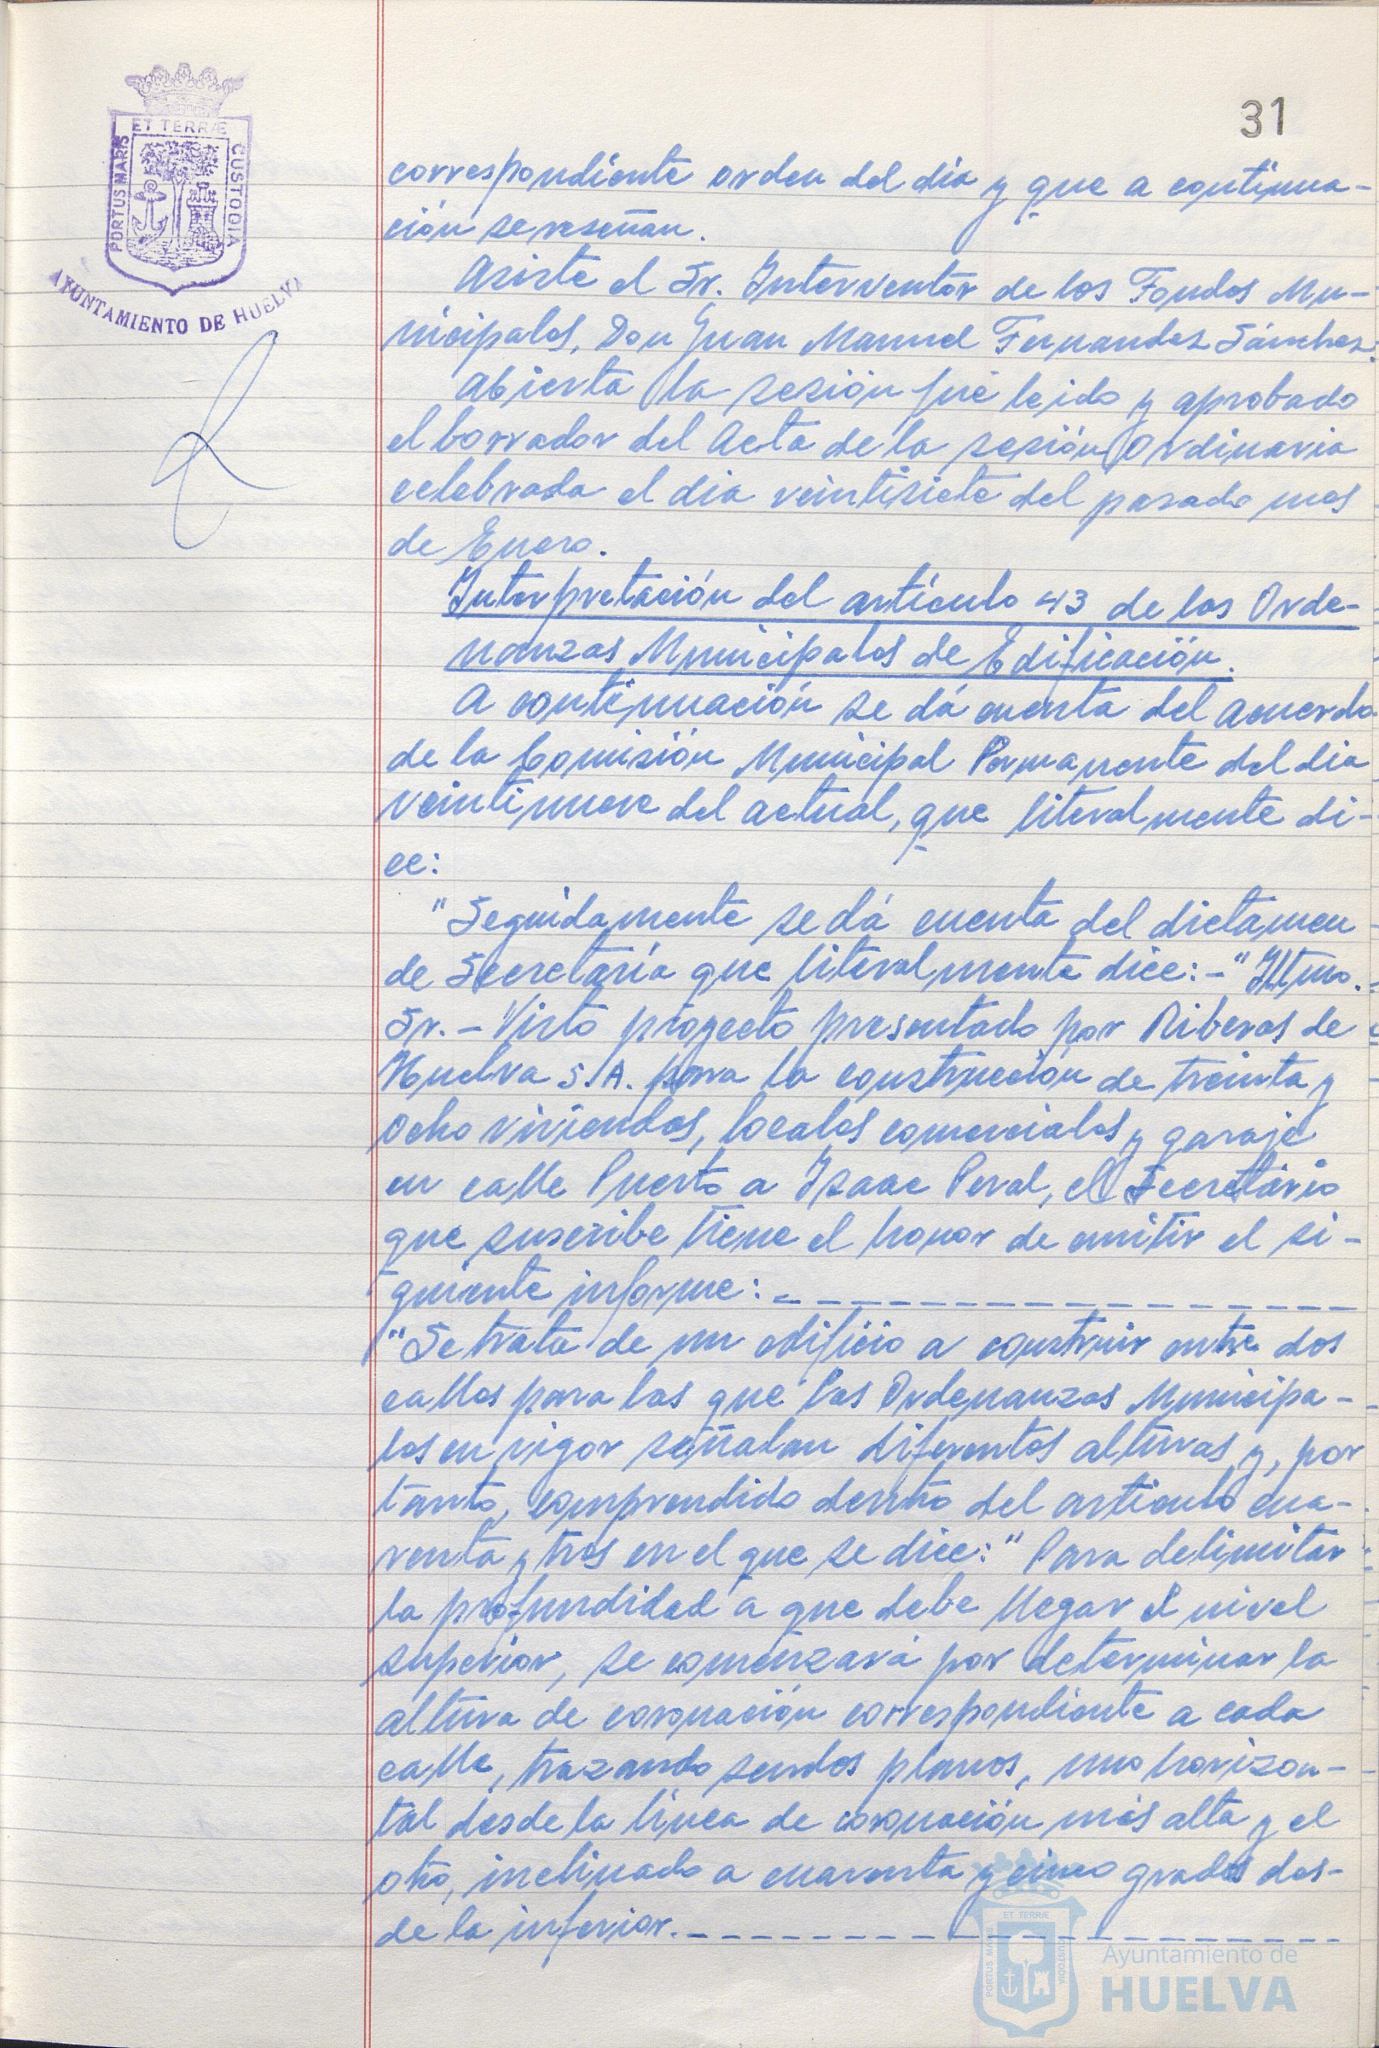 31
ET TERRÆ
PORTUS MARIS
CUSTODIA
AYUNTAMIENTO DE HUELVA
correspondiente orden del dia y que a continua-
ción se reseñan.
Asiste el Sr. Interventor de los Fondos Mu-
nicipales, Don Juan Manuel Fernandez Sánchez.
Abierta la sesión fué leido y aprobado
el borrador del Acta de la sesión Ordinaria
celebrada el dia veintisiete del pasado mes
de Enero.
Interpretación del artículo 43 de las Orde-
nanzas Municipales de Edificación.
A continuación se dá cuenta del acuerdo
de la Comisión Municipal Permanente del dia
veintinueve del actual, que literalmente di-
ce:
"Seguidamente se dá cuenta del dictamen
de Secretaría que literalmente dice:-"Iltmo.
Sr.- Visto proyecto presentado por Riberas de
Huelva S.A. para la construcción de treinta y
ocho viviendas, locales comerciales y garaje
en calle Puerto a Isaac Peral, el Secretário
que suscribe tiene el honor de emitir el si-
guiente informe:-
"Se trata de un edificio a construir entre dos
calles para las que las Ordenanzas Municipa-
les en vigor señalan diferentes alturas y, por
tanto, comprendido dentro del artículo cua-
renta y tres en el que se dice:" Para delimitar
la profundidad a que debe llegar el nivel
superior, se comenzará por determinar la
altura de coronación correspondiente a cada
calle, trazando sendos planos, uno horizon-
tal desde la línea de coronación más alta y el
otro, inclinado a cuarenta y cinco grados des-
de la inferior.-
ET TERRÆ
PORTUS MARIS
CUSTODIA
Ayuntamiento de
HUELVA